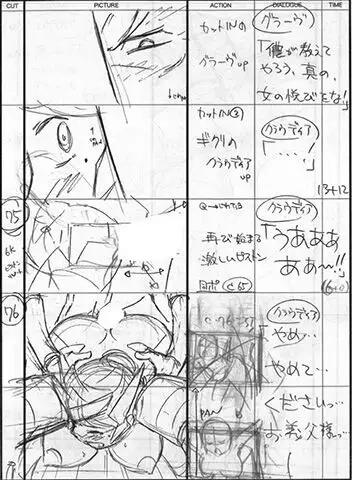 CUT PICTURE ACTION DIALOGUE TIME
カットINの
グラーヴup
グラーヴ
「僕が教えて
やろう、真の、
女の悦びをな!」
カットIN③
ギクリの
クラウディア
up
クラウディア
「・・・・!」
13+12
75
再び始まる
激しいピストン
クラウディア
「うああああ
あぁ〜!!」
(6+0)
76
C-76-37
PAN
クラウディア
「やめ…
やめて…
くださいっ…
お義父様っ…